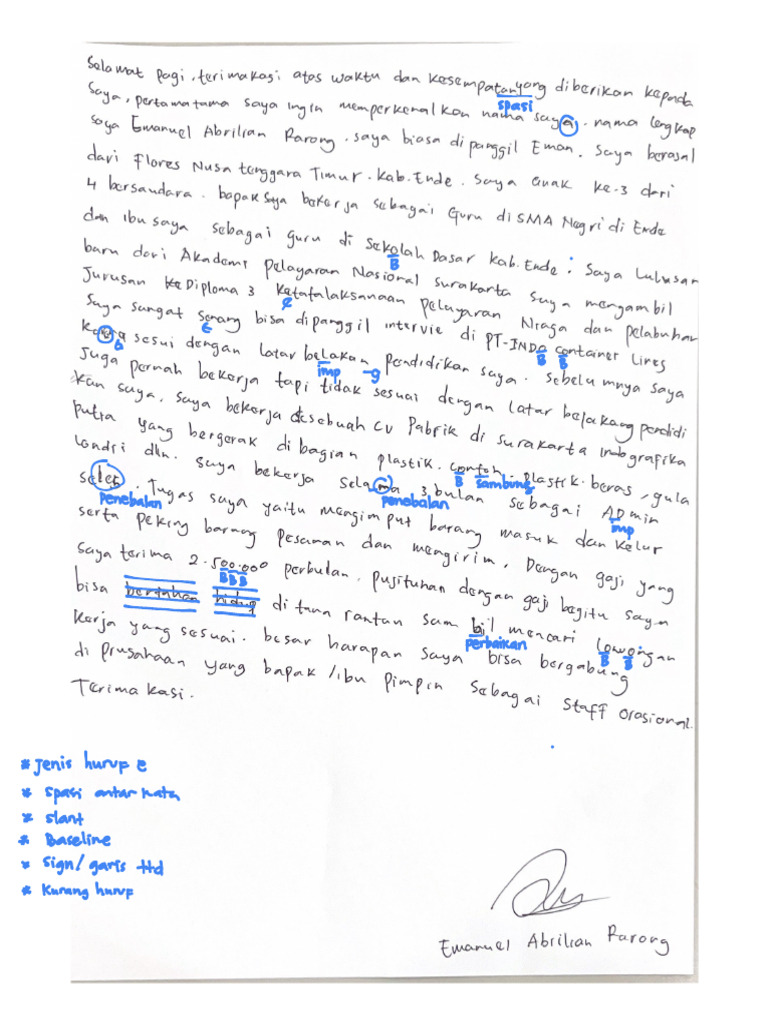 Selamat pagi, terimakasi atas waktu dan kesempatan yang diberikan kepada
spasi
saya, pertamatama saya ingin memperkenalkan nama saya. nama lengkap
saya Emanuel Abrilian Rarong. saya biasa dipanggil Eman. saya berasal
dari Flores Nusa tenggara Timur. Kab. Ende. saya anak ke-3 dari
4 bersaudara. bapak saya bekerja sebagai Guru di SMA Negri di Ende
dan ibu saya sebagai guru di Sekolah Dasar kab. Ende. Saya Lulusan
B
baru dari Akademi Pelayaran Nasional surakarta saya mengambil
Jurusan Diploma 3 Ketatalaksanaan Pelayaran Niaga dan pelabuhan
e
Saya sangat senang bisa dipanggil intervie di PT-INDO container Lines
B B
sesui dengan latar belakan pendidikan saya. sebelumnya saya
imp -g
Juga pernah bekerja tapi tidak sesuai dengan latar belakang pendidi
kan saya. saya bekerja disebuah CV Pabrik di surakarta indografika
putra yang bergerak di bagian plastik. contoh. plastik beras, gula
B sambung
londri dln. saya bekerja selama 3 bulan sebagai Admin
penebalan imp
penebalan
. Tugas saya yaitu mengimput barang masuk dan kelur
serta peking barang pesanan dan mengirim. Dengan gaji yang
saya terima 2.500.000 perbulan. pujituhan dengan gaji begitu saya
B B B
bisa bertahan hidup di tana rantan sam bil mencari lowongan
perbaikan B B
kerja yang sesuai. besar harapan saya bisa bergabung
di prusahaan yang bapak/ibu pimpin sebagai staff orasional.
Terima kasi.
* Jenis huruf e
* Spasi antar kata
* slant
* Baseline
* Sign/ garis ttd
* Kurang huruf
Emanuel Abrilian Rarong